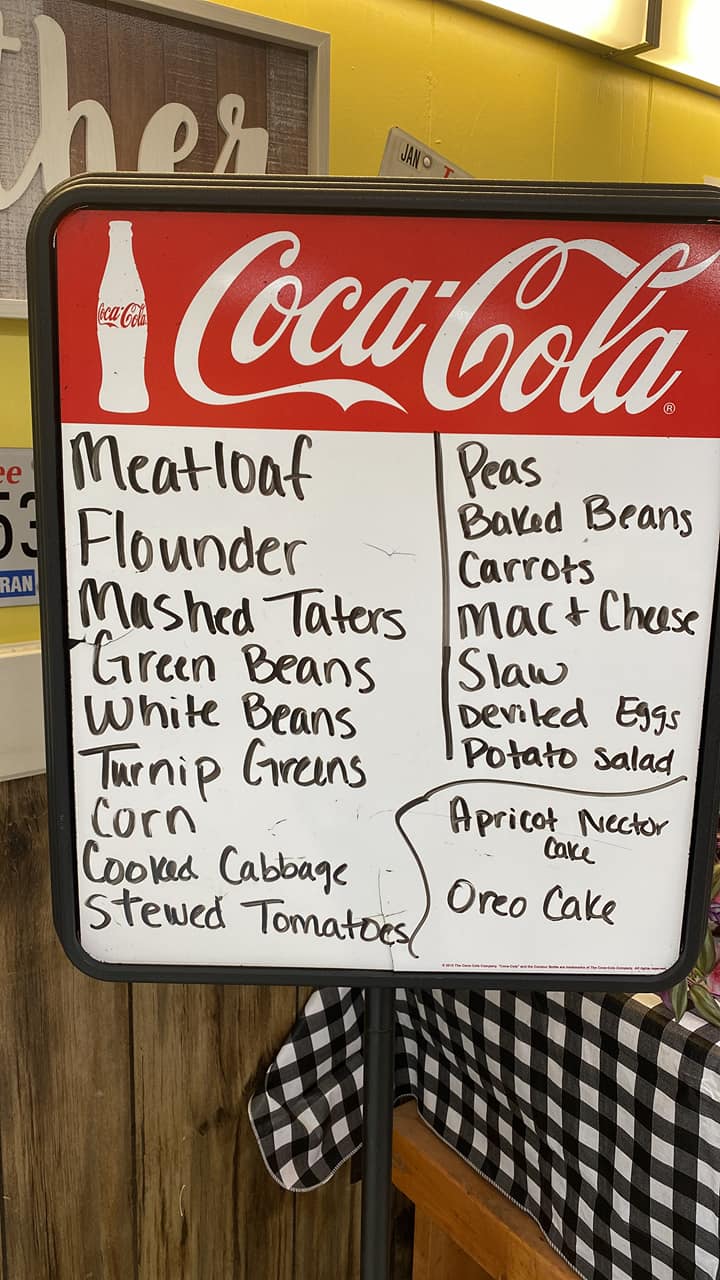 ther
JAN T
ee
53
RAN
Coca-Cola
Coca-Cola®
Meatloaf
Flounder
Mashed Taters
Green Beans
White Beans
Turnip Greens
Corn
Cooked Cabbage
Stewed Tomatoes
Peas
Baked Beans
Carrots
Mac + Cheese
Slaw
Deviled Eggs
Potato Salad
Apricot Nector
Cake
Oreo Cake